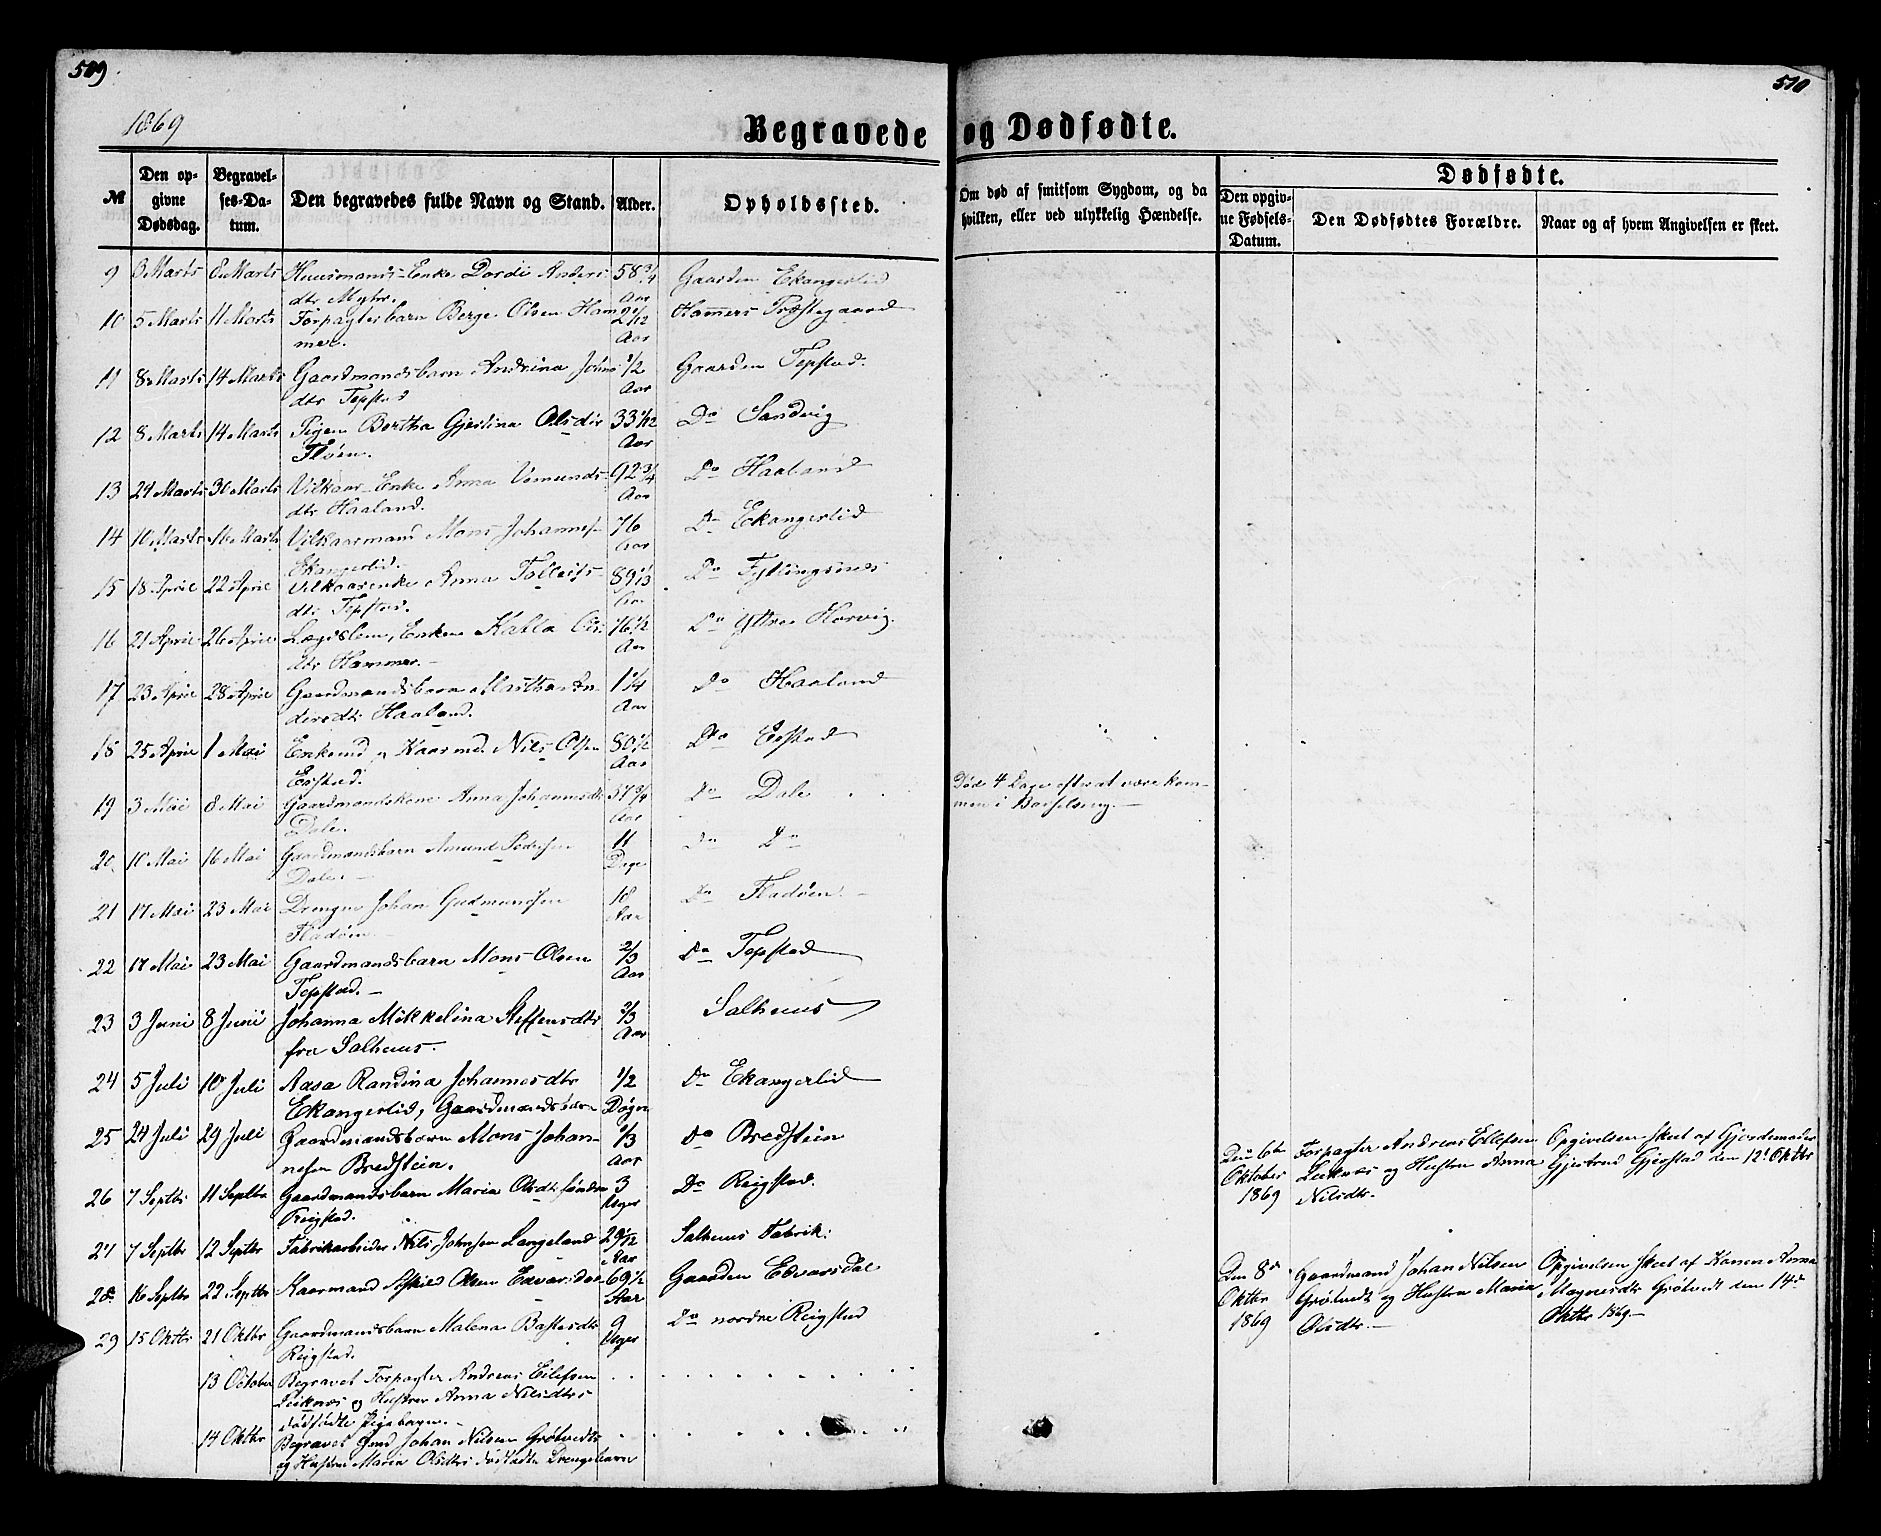 509
510
1869
Begravede og Dødfødte.
№
Den opgivne Dødsdag.
Begravelses-Datum.
Den begravedes fulde Navn og Stand.
Alder.
Opholdssted.
Om død af smitsom Sygdom, og da hvilken, eller ved ulykkelig Hændelse.
Dødfødte.
Den opgivne Fødsels-Datum.
Den Dødfødtes Forældre.
Naar og af hvem Angivelsen er skeet.
9 3 Marts 8 Marts Huusmands-Enke Dordi Anders- 58 3/4 Gaarden Ekangerlid
dtr Myhr. Aar
10 5 Marts 11 Marts Forpagterbarn Berge Olsen Ham- 2 1/12 Hamers Præstegaard
mer. Aar
11 8 Marts 14 Marts Gaardmandsbarn Andrina Johns 1/2 Gaarden Tepstad.
dtr Tepstad Aar
12 8 Marts 14 Marts Pigen Bertha Gjertina Olsdtr 33 1/12 Do Sandvig
Fløen. Aar
13 24 Marts 30 Marts Vilkaar-Enke Anna Vemunds- 92 3/4 Do Haaland
dtr Haaland. Aar
14 10 Marts 16 Marts Vilkaarmand Mons Johannes- 76 Do Ekangerlid
Ekangerlid. Aar
15 18 April 22 April Vilkaarenke Anna Tolleifs- 89 1/3 Do Fytlingsnes
dtr Tepstad. Aar
16 21 April 26 April Lægdslem, Enken Kalla Ols 76 1/2 Do Yttre Horvig.
dtr Hammer. Aar
17 23 April 28 April Gaardmandsbarn Martha An- 1 1/4 Do Haaland
dersdtr Haaland. Aar
18 25 April 1 Mai Enkemd og Kaarmd. Nils Olsen 80 1/2 Do Eidstad
Eidstad. Aar
19 3 Mai 8 Mai Gaardmandskone Anna Johannesdtr 37 3/4 Do Dale Død 4 Dage efterat være kom-
Dale. Aar men i Barselseng.
20 10 Mai 16 Mai Gaardmandsbarn Amund Pedersen 11 Do Do
Dale. Dage
21 17 Mai 23 Mai Drengen Johan Gudmundsen 18 Do Fladøen.
Fladøen Aar
22 17 Mai 23 Mai Gaardmandsbarn Mons Olsen 2/3 Do Tepstad
Tepstad. Aar
23 3 Juni 8 Juni Johanna Mikkelina Steffensdtr 2/3 Salhuus
fra Salhuus. Aar
24 5 Juli 10 Juli Aasa Randina Johannesdtr 1/2 Do Ekangerlid
Ekangerlid, Gaardmandsbarn Døgn
25 24 Juli 29 Juli Gaardmandsbarn Mons Johan- 1/3 Do Bredstein
nesen Bredstein. Aar
Den 6te Forpagter Andreas Eilefsen Opgivelsen skeet af Gjordemoder
Oktober Leiknes og Hustru Anna Gjertrud Gjerstad den 12te Oktbr
1869 Nilsdtr.
26 7 Septbr 11 Septbr Gaardmandsbarn Maria Olsdtr søndre 3 Do Reigstad.
Reigstad. Uger
27 7 Septbr 12 Septbr Fabrikarbeider Nils Johnsen Langeland 29 1/12 Salhuus Fabrik.
Aar
28 16 Septbr 22 Septbr Kaarmand Askild Olsen Edvarsdal 69 1/2 Gaarden Edvarsdal
Aar
Den 8de Gaardmand Johan Nilsen Opgivelsen skeet af Konen Anna
Oktbr Grøtvedt og Hustru Maria Magnesdtr Grøtvedt den 14de
1869 Olsdtr. Oktbr 1869
29 15 Oktbr 21 Oktbr Gaardmandsbarn Malena Bastesdtr 9 Do nordre Reigstad
Reigstad. Uger
13 October Begravet Forpagter Andreas Eilefsen
Leiknes og Hustrue Anna Nilsdtrs
dødfødte Pigebarn.
14 Oktbr Begravet Gmd Johan Nilsen Grøtvedts
og Hustru Maria Olsdtrs dødfødte Drengebarn